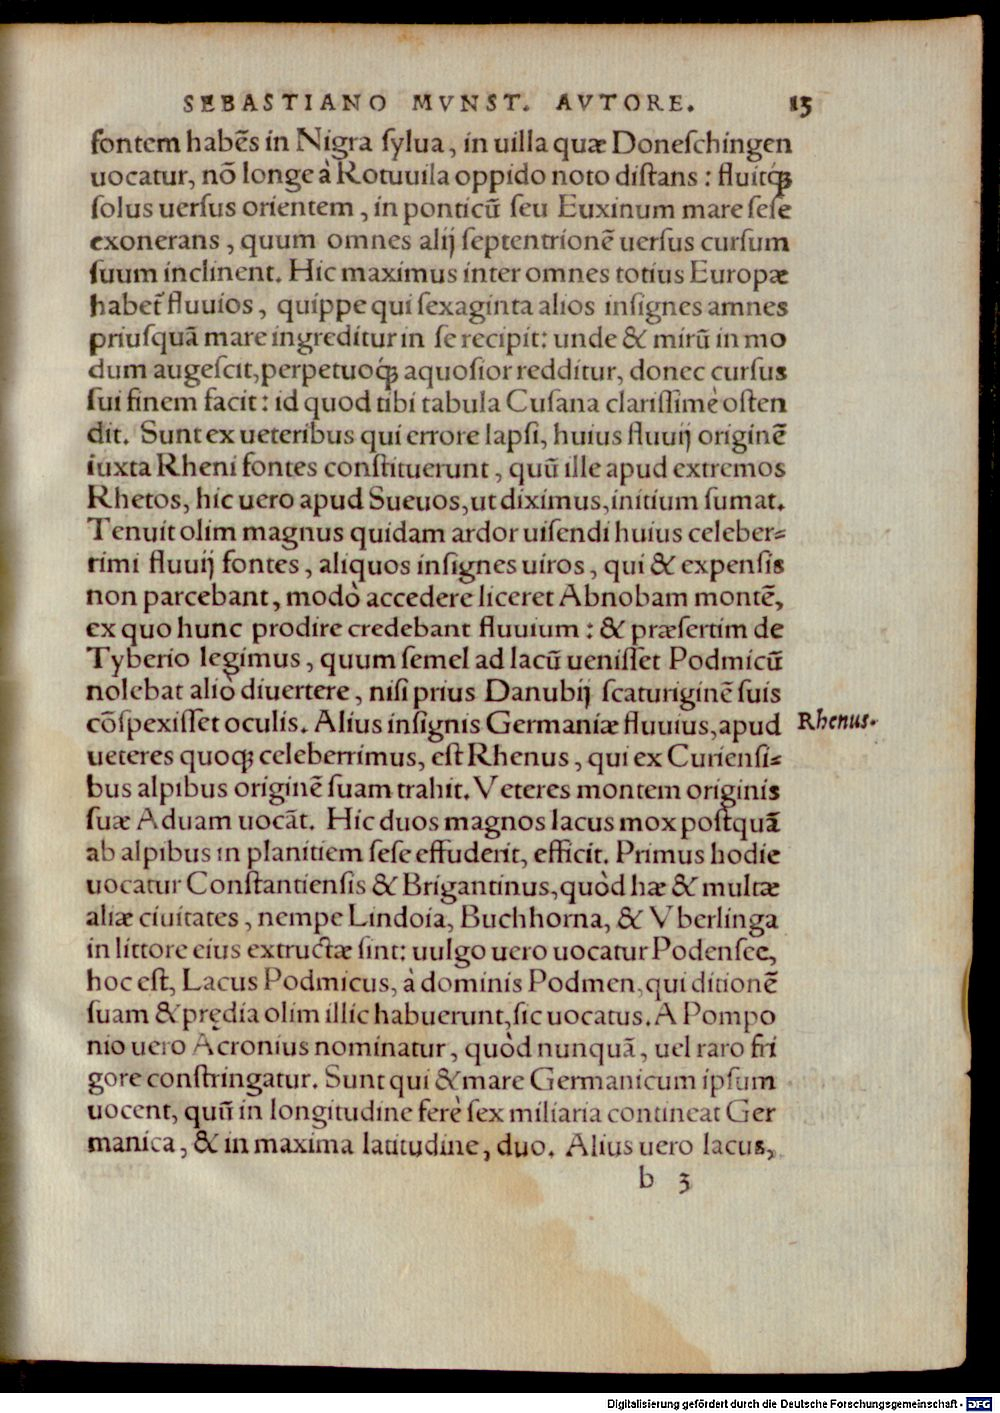 SEBASTIANO MVNST. AVTORE. 13
fontem habẽs in Nigra ſylua, in uilla quæ Doneſchingen
uocatur, nõ longe à Rotuuila oppido noto diſtans : fluitq́;
ſolus uerſus orientem, in ponticũ ſeu Euxinum mare ſeſe
exonerans, quum omnes alij ſeptentrionẽ uerſus curſum
ſuum inclinent. Hic maximus inter omnes totius Europæ
habet̃ fluuios, quippe qui ſexaginta alios inſignes amnes
priuſquã mare ingreditur in ſe recipit: unde & mirũ in mo
dum augeſcit, perpetuoq́; aquoſior redditur, donec curſus
ſui finem facit : id quod tibi tabula Cuſana clariſſimè oſten
dit. Sunt ex ueteribus qui errore lapſi, huius fluuij originẽ
iuxta Rheni fontes conſtituerunt, quũ ille apud extremos
Rhetos, hic uero apud Sueuos, ut diximus, initium ſumat.
Tenuit olim magnus quidam ardor uiſendi huius celeber⸗
rimi fluuij fontes, aliquos inſignes uiros, qui & expenſis
non parcebant, modò accedere liceret Abnobam montẽ,
ex quo hunc prodire credebant fluuium : & præſertim de
Tyberio legimus, quum ſemel ad lacũ ueniſſet Podmicũ
nolebat aliò diuertere, niſi prius Danubij ſcaturiginẽ ſuis
cõſpexiſſet oculis. Alius inſignis Germaniæ fluuius, apud
Rhenus.
ueteres quoq; celeberrimus, eſt Rhenus, qui ex Curienſi⸗
bus alpibus originẽ ſuam trahit. Veteres montem originis
ſuæ Aduam uocãt. Hic duos magnos lacus mox poſtquã
ab alpibus in planitiem ſeſe effuderit, efficit. Primus hodie
uocatur Conſtantienſis & Brigantinus, quòd hæ & multæ
aliæ ciuitates, nempe Lindoia, Buchhorna, & Vberlinga
in littore eius extructæ ſint: uulgo uero uocatur Podenſee,
hoc eſt, Lacus Podmicus, à dominis Podmen, qui ditionẽ
ſuam & prędia olim illic habuerunt, ſic uocatus. A Pompo
nio uero Acronius nominatur, quòd nunquã, uel raro fri
gore conſtringatur. Sunt qui & mare Germanicum ipſum
uocent, quũ in longitudine ferè ſex miliaria contineat Ger
manica, & in maxima latitudine, duo. Alius uero lacus,
b 3
Digitalisierung gefördert durch die Deutsche Forschungsgemeinschaft - DFG